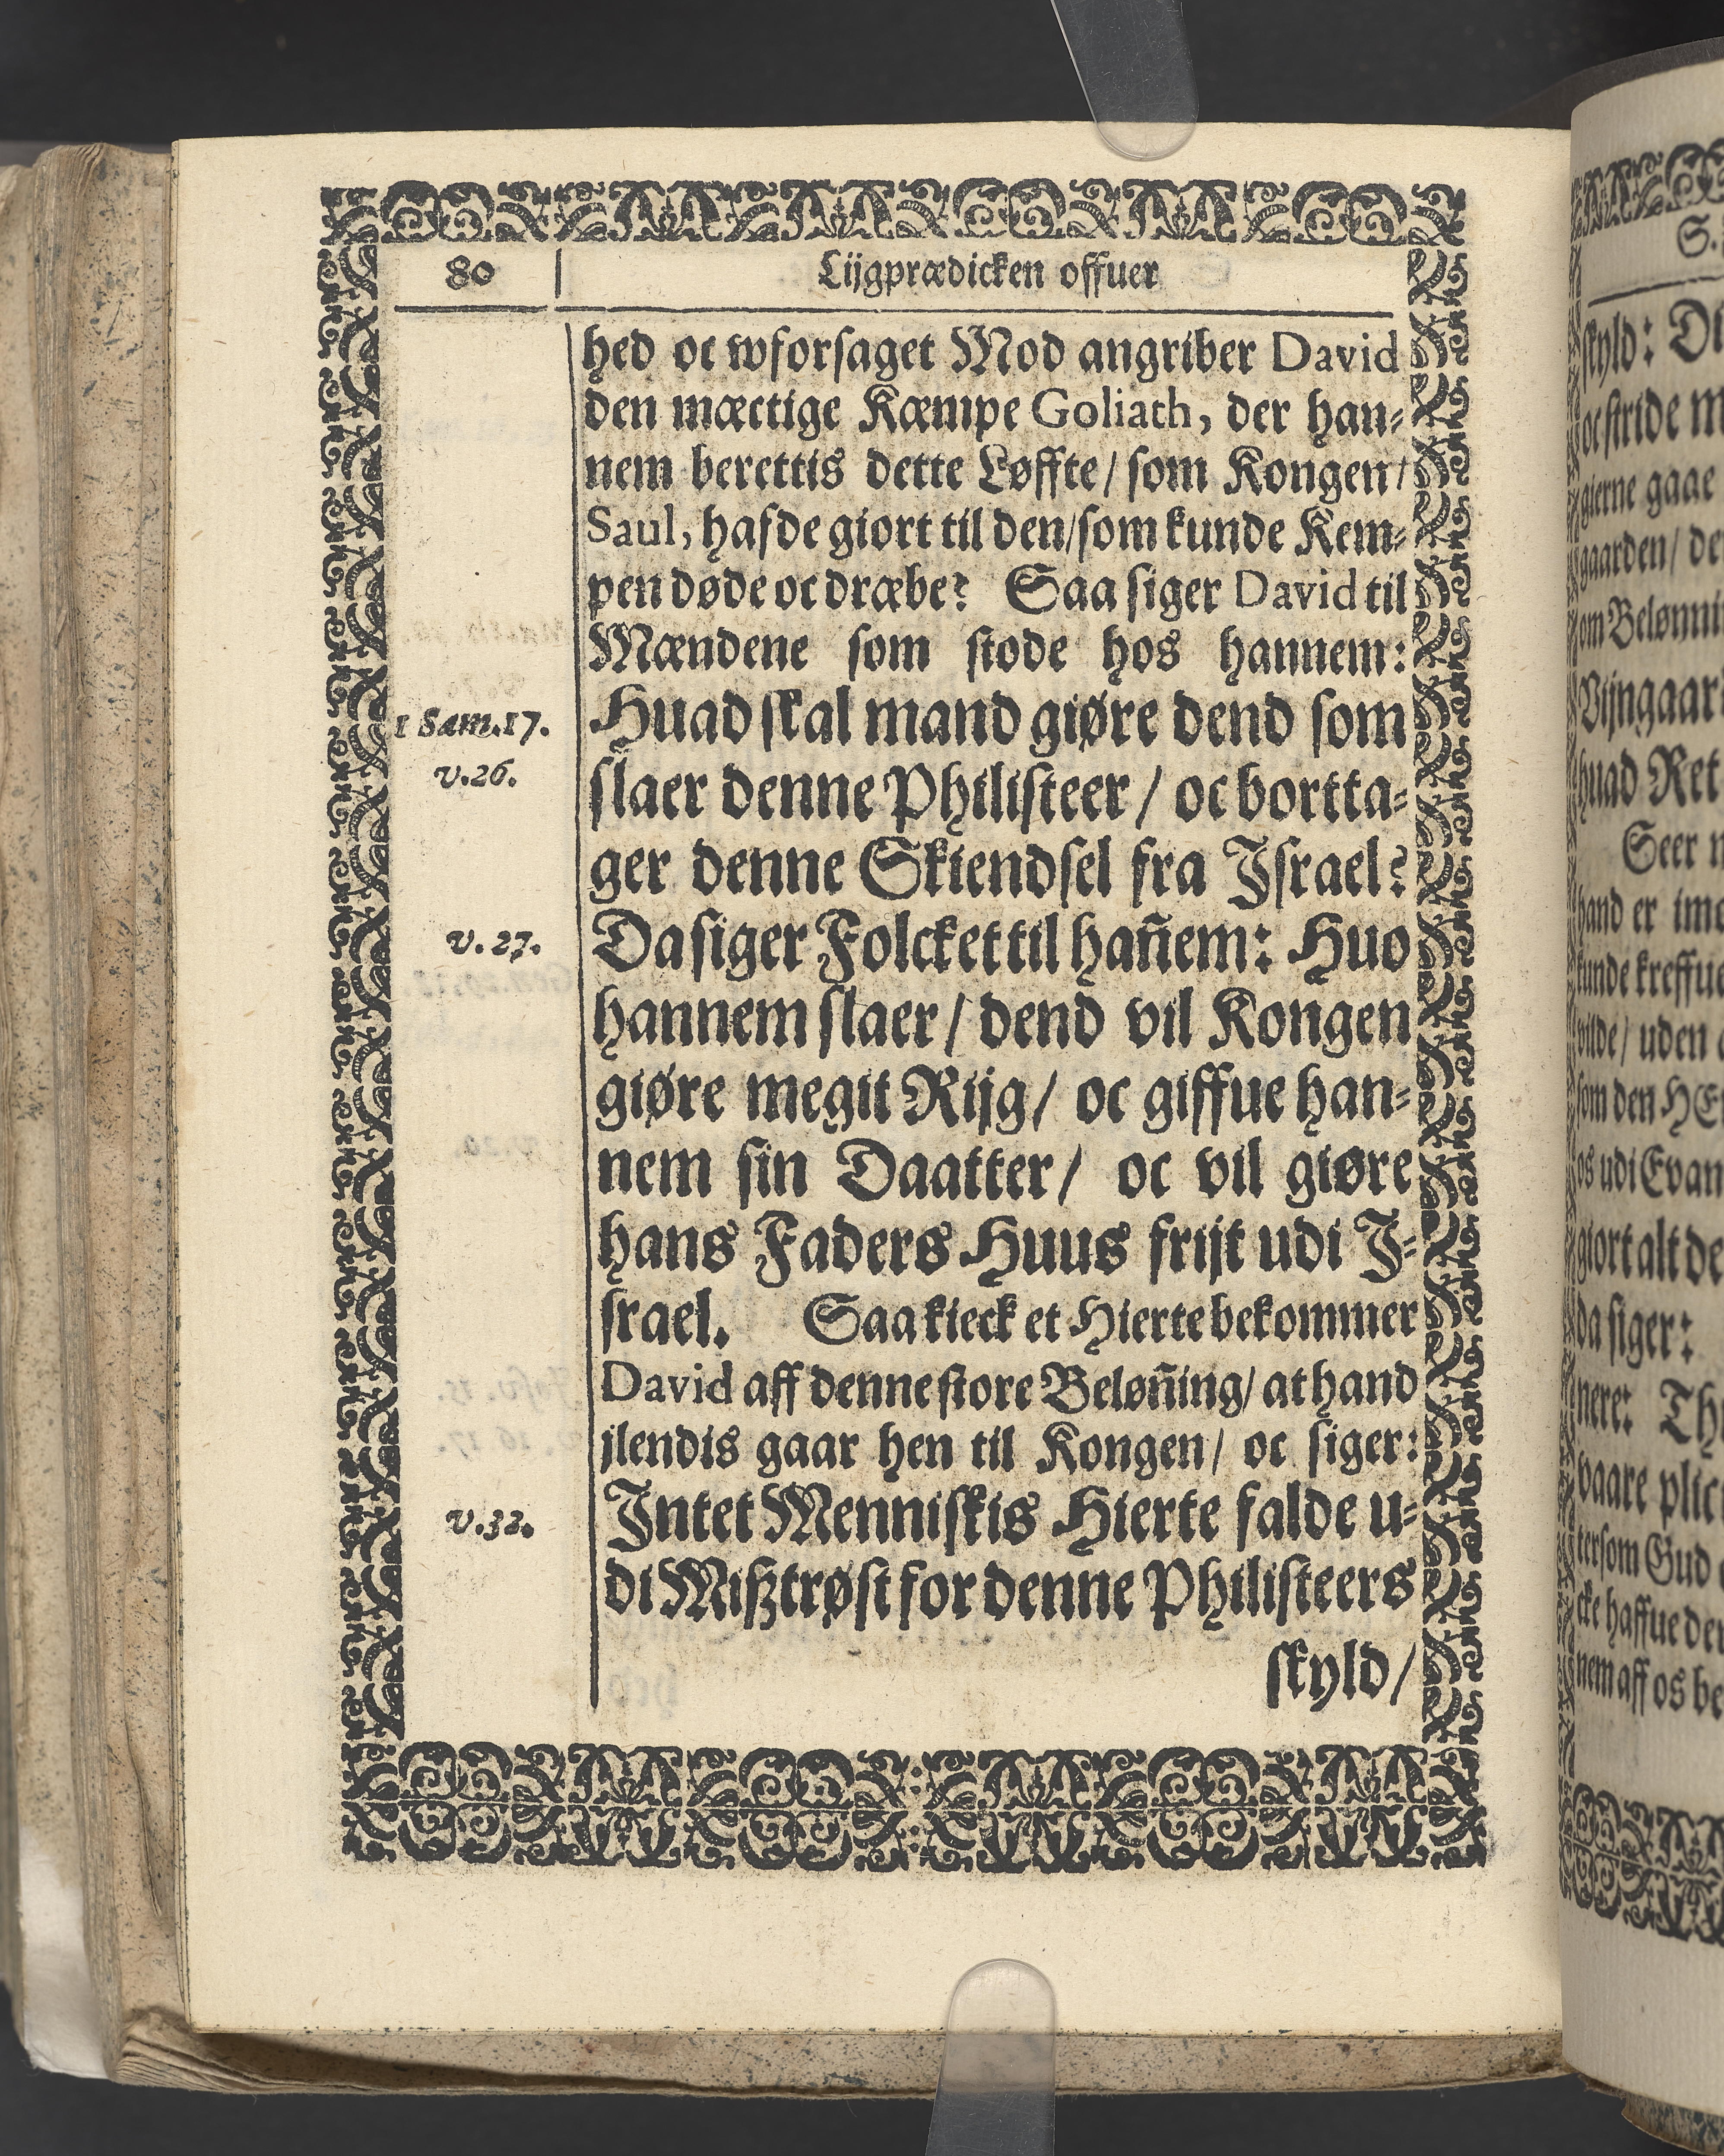 80
Lijgprædicken offuer
hed oc wforsaget Mod angriber David
den mæctige Kæmpe Goliath, der han-
nem berettis dette Løffte/ som Kongen/
Saul, hafde giort til den/som kunde Kem-
pen døde oc dræbe? Saa siger David til
Mændene som stode hos hannem:
1 Sam.17.
Huad skal mand giøre dend som
v.26.
slaer denne Philisteer/ oc bortta-
ger denne Skiendsel fra Israel?
v.27.
Da siger Folcket til hañem: Huo
hannem slaer/ dend vil Kongen
giøre megit Rijg/ oc giffue han-
nem sin Daatter/ oc vil giøre
hans Faders Huus frijt udi I-
srael. Saa kieck et Hierte bekommer
David aff denne store Beløñing/ at hand
jlendis gaar hen til Kongen/ oc siger:
v.32.
Intet Menniskis Hierte falde u-
di Mißtrøst for denne Philisteers
skyld/
S.
skyld:
oc stride
gierne gaae
gaarden/
om
huad
Seer
hand er
kunde
vilde/ uden
som den
os udi
giort alt
da siger:
nere:
vaare
tersom Gud
cke haffue
nem aff os